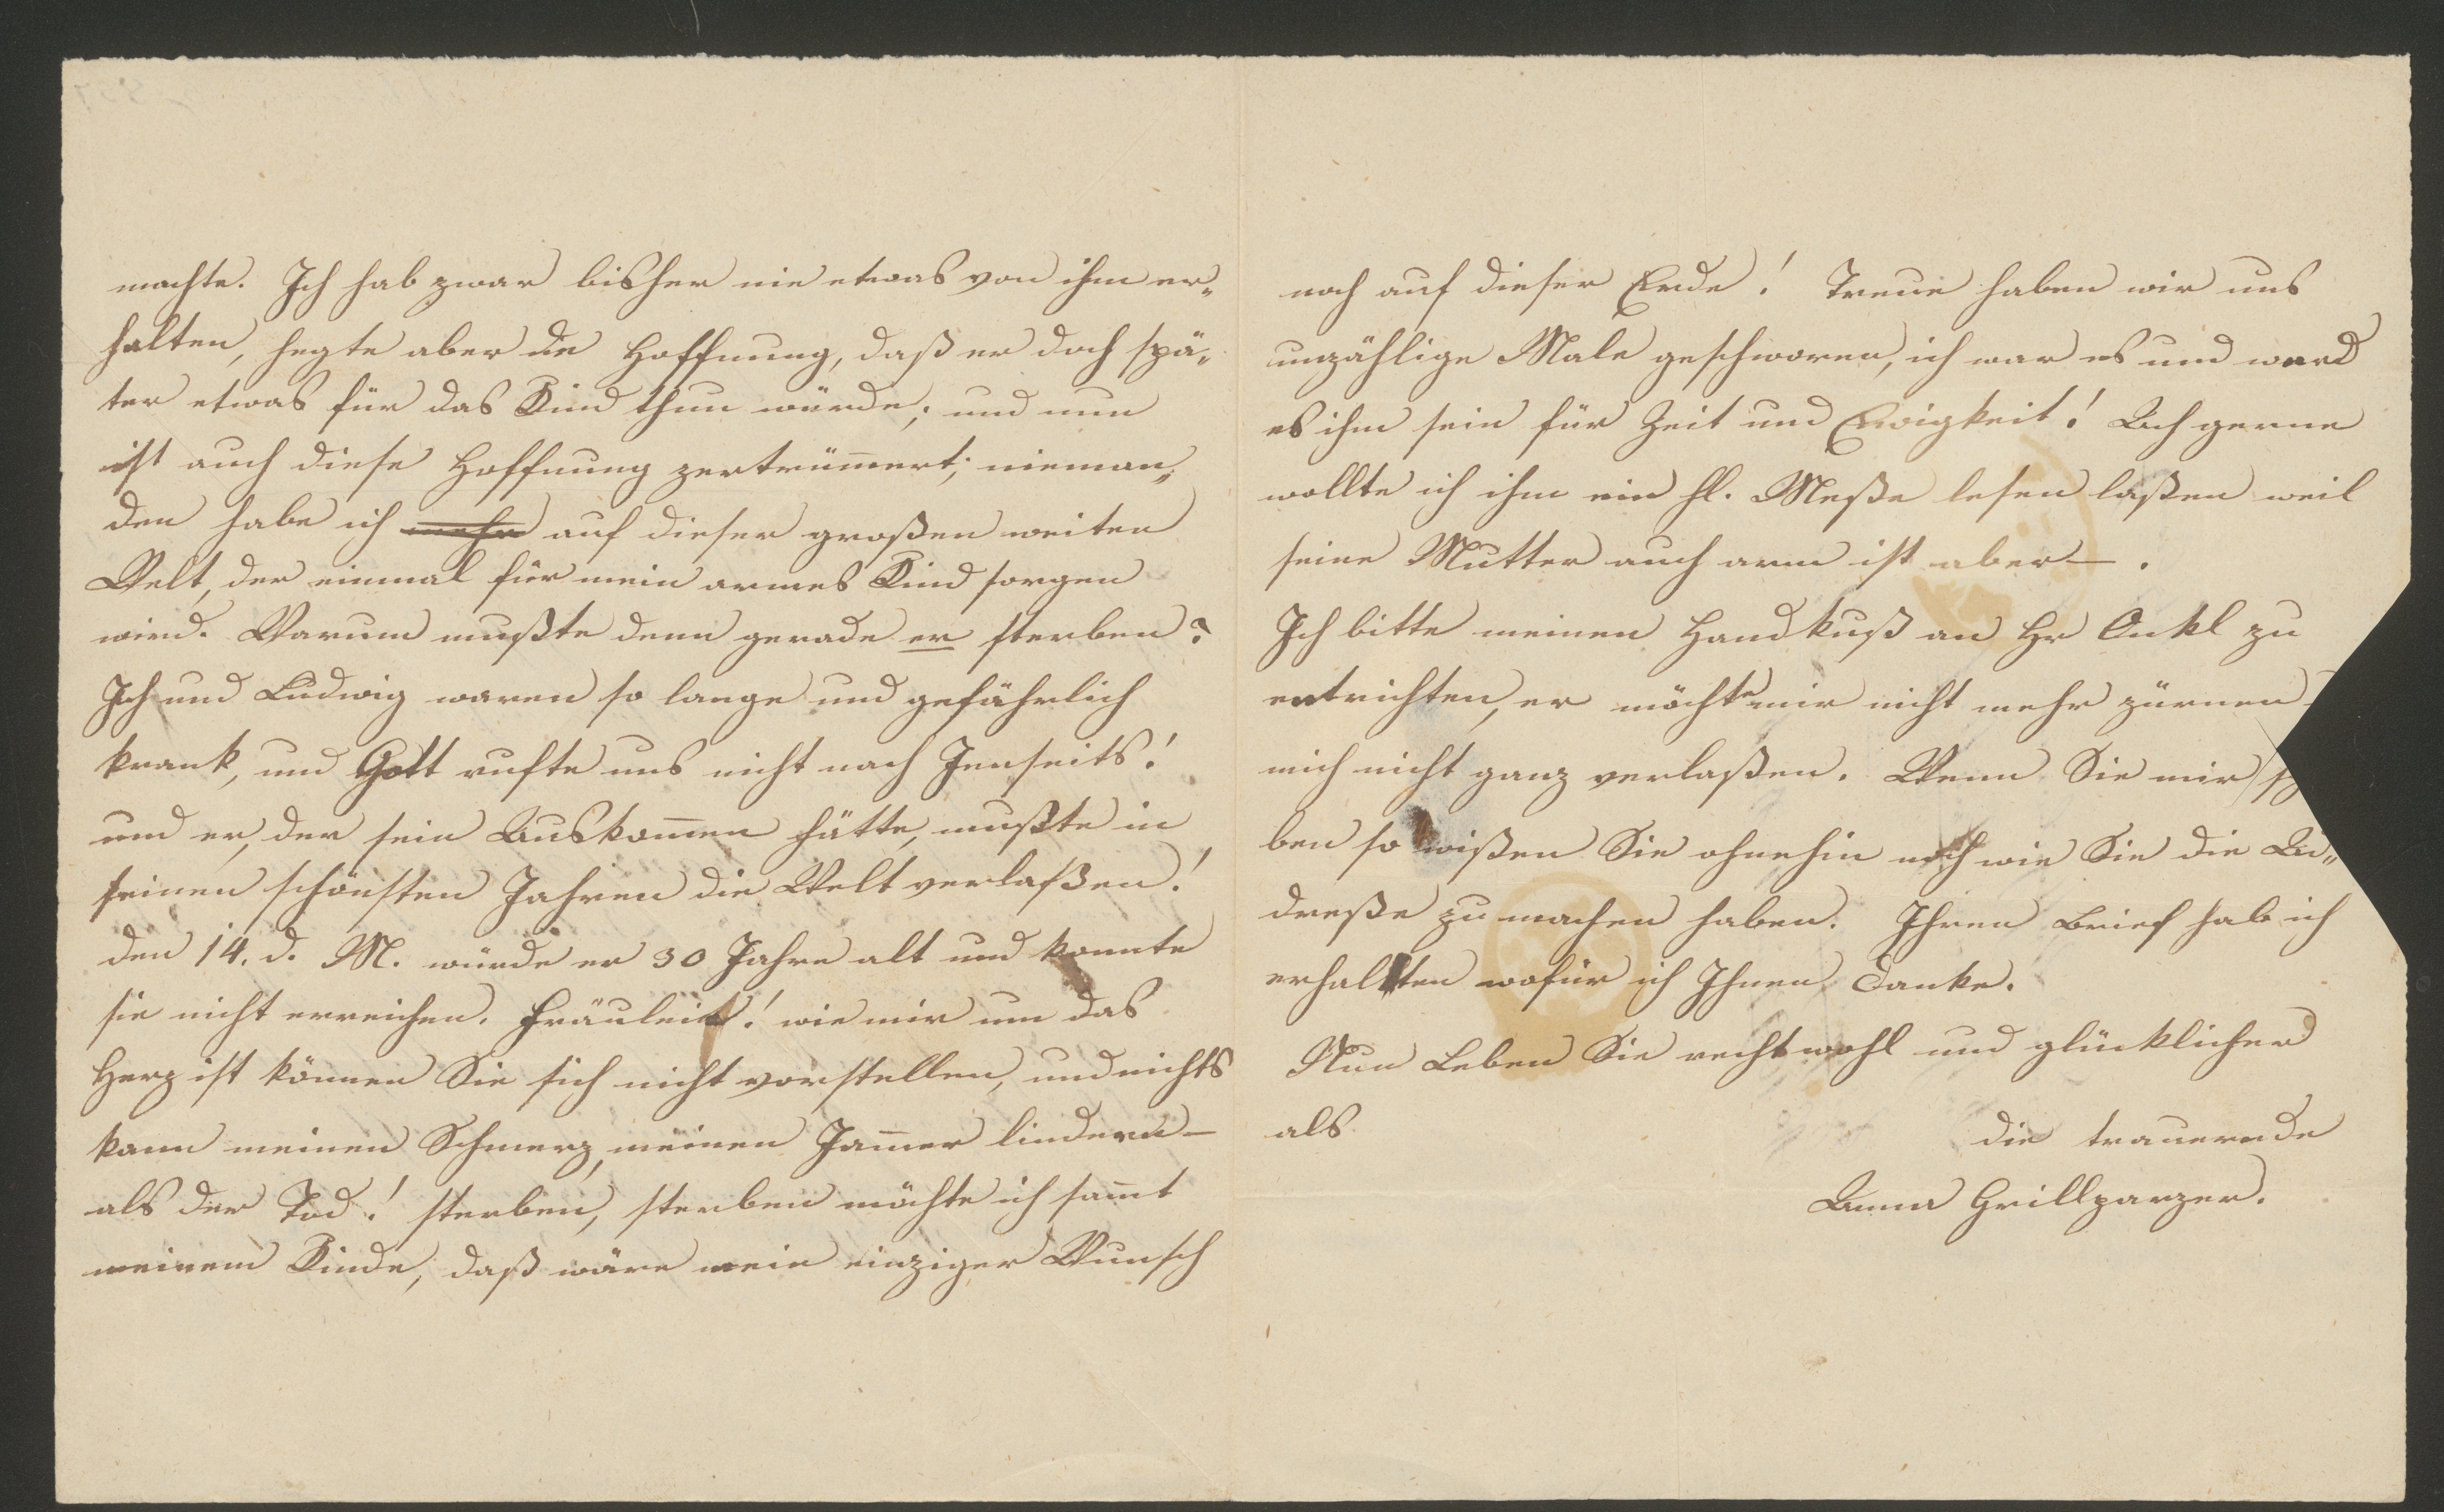 machte. Ich hab zwar bisher nie etwas von ihm er„
halten, hegte aber die Hoffnung, daß er doch spä„
ter etwas für das Kind thun würde; und nun
ist auch diese Hoffnung zertrümmert; nieman„
den habe ich mehr auf dieser großen weiten
Welt, der einmal für mein armes Kind sorgen
wird. Warum mußte denn gerade er sterben?
Ich und Ludwig waren so lange und gefährlich
krank, und Gott rufte uns nicht nach Jenseits!
und er, der sein Auskommen hätte, mußte in
seinen schönsten Jahren die Welt verlaßen!
den 14. d. M. würde er 30 Jahre alt und konnte
sie nicht erreichen. Fräulein! wie mir um das
Herz ist können Sie sich nicht vorstellen, und nichts
kann meinen Schmerz, meinen Jammer lindern —
als der Tod! sterben, sterben möchte ich sammt
meinem Kinde, daß wäre mein einziger Wunsch
noch auf dieser Erde! Treue haben wir uns
unzählige Male geschworen, ich war es und werd
es ihm sein für Zeit und Ewigkeit! Ach gerne
wollte ich ihm ein hl. Meße lesen laßen weil
seine Mutter auch arm ist aber —.
Ich bitte meinen Handkuß an Hr Onkl zu
entrichten, er möchte mir nicht mehr zürnen
mich nicht ganz verlaßen. Wenn Sie mir
ben so wißen Sie ohnehin noch wie Sie die Au„
dreße zu machen haben. Ihren Brief hab ich
erhalten wofür ich Ihnen danke.
Nun Leben Sie recht wohl und glücklicher
als
die trauernde
Anna Grillparzer.